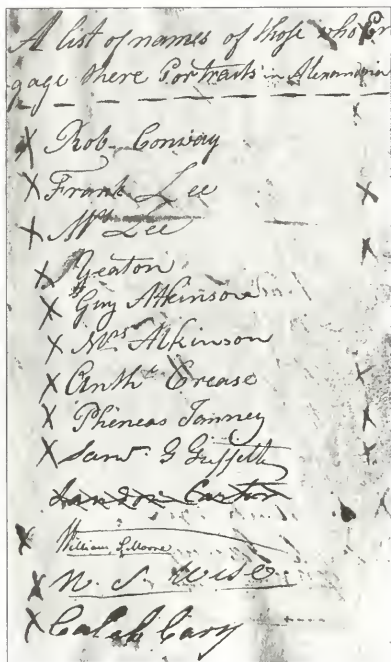 A list of names of those who En
gage there Portraits in Alexandria
X Rob. Conway
X Frank Lee
X Mrs Lee
X Yeaton
X Guy Atkinson
X Mrs Atkinson
X Anth. Crease
X Phineas Janney
X Sam. G Griffith
Landon Carter
X William S. Moore
X N. S. Wise
X Caleb Cary